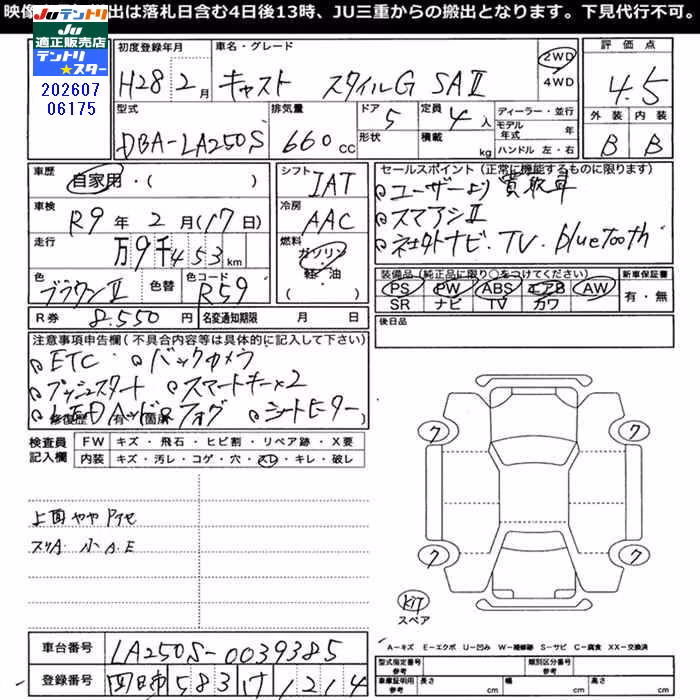 映像 出は落札日含む4日後13時、JU三重からの搬出となります。下見代行不可。
JUテントリ
JU
適正販売店
テントリ
スター
202607
06175
初度登録年月
H28 2月
車名・グレード
キャスト スタイルG SAⅡ
2WD
4WD
評価点
4.5
外装 内装
B B
型式
DBA-LA250S
排気量
660cc
ドア 5
形状
定員 4人
積載 kg
ディーラー・並行
モデル年式 年
ハンドル 左・右
車歴
自家用・( )
シフト
IAT
セールスポイント(正常に機能するものに限ります)
ユーザーより買取車
スマアシⅡ
社外ナビ・TV・Bluetooth
車検
R9年2月(17日)
冷房
AAC
走行
万9千453km
燃料
ガソリン
軽・油
( )
色
ブラウンⅡ
色替
色コード
R59
装備品(純正品に限り○をつけてください)
PS PW ABS エアB AW
SR ナビ TV カワ
新車保証書
有・無
R券 8,550円
名変通知期限 月 日
後日品
注意事項申告欄(不具合内容等は具体的に記入して下さい)
ETC バックカメラ
プッシュスタート スマートキー×2
LEDヘッド&フォグ シートヒーター
修復歴 有 (箇所
検査員記入欄
FW キズ・飛石・ヒビ割・リペア跡・X要
内装 キズ・汚レ・コゲ・穴・スレ・キレ・破レ
上面やや
スリA 小A.E
ワ ワ
ワ ワ
KIT
スペア
A-キズ E-エクボ U-凹み W-補修跡 S-サビ C-腐食 XX-交換済
車台番号 LA250S-0039385
登録番号 四日市 583 け 1214
型式指定番号
参考
類別区分番号
参考
車庫証明用
参考
長さ cm 幅 cm 高さ cm